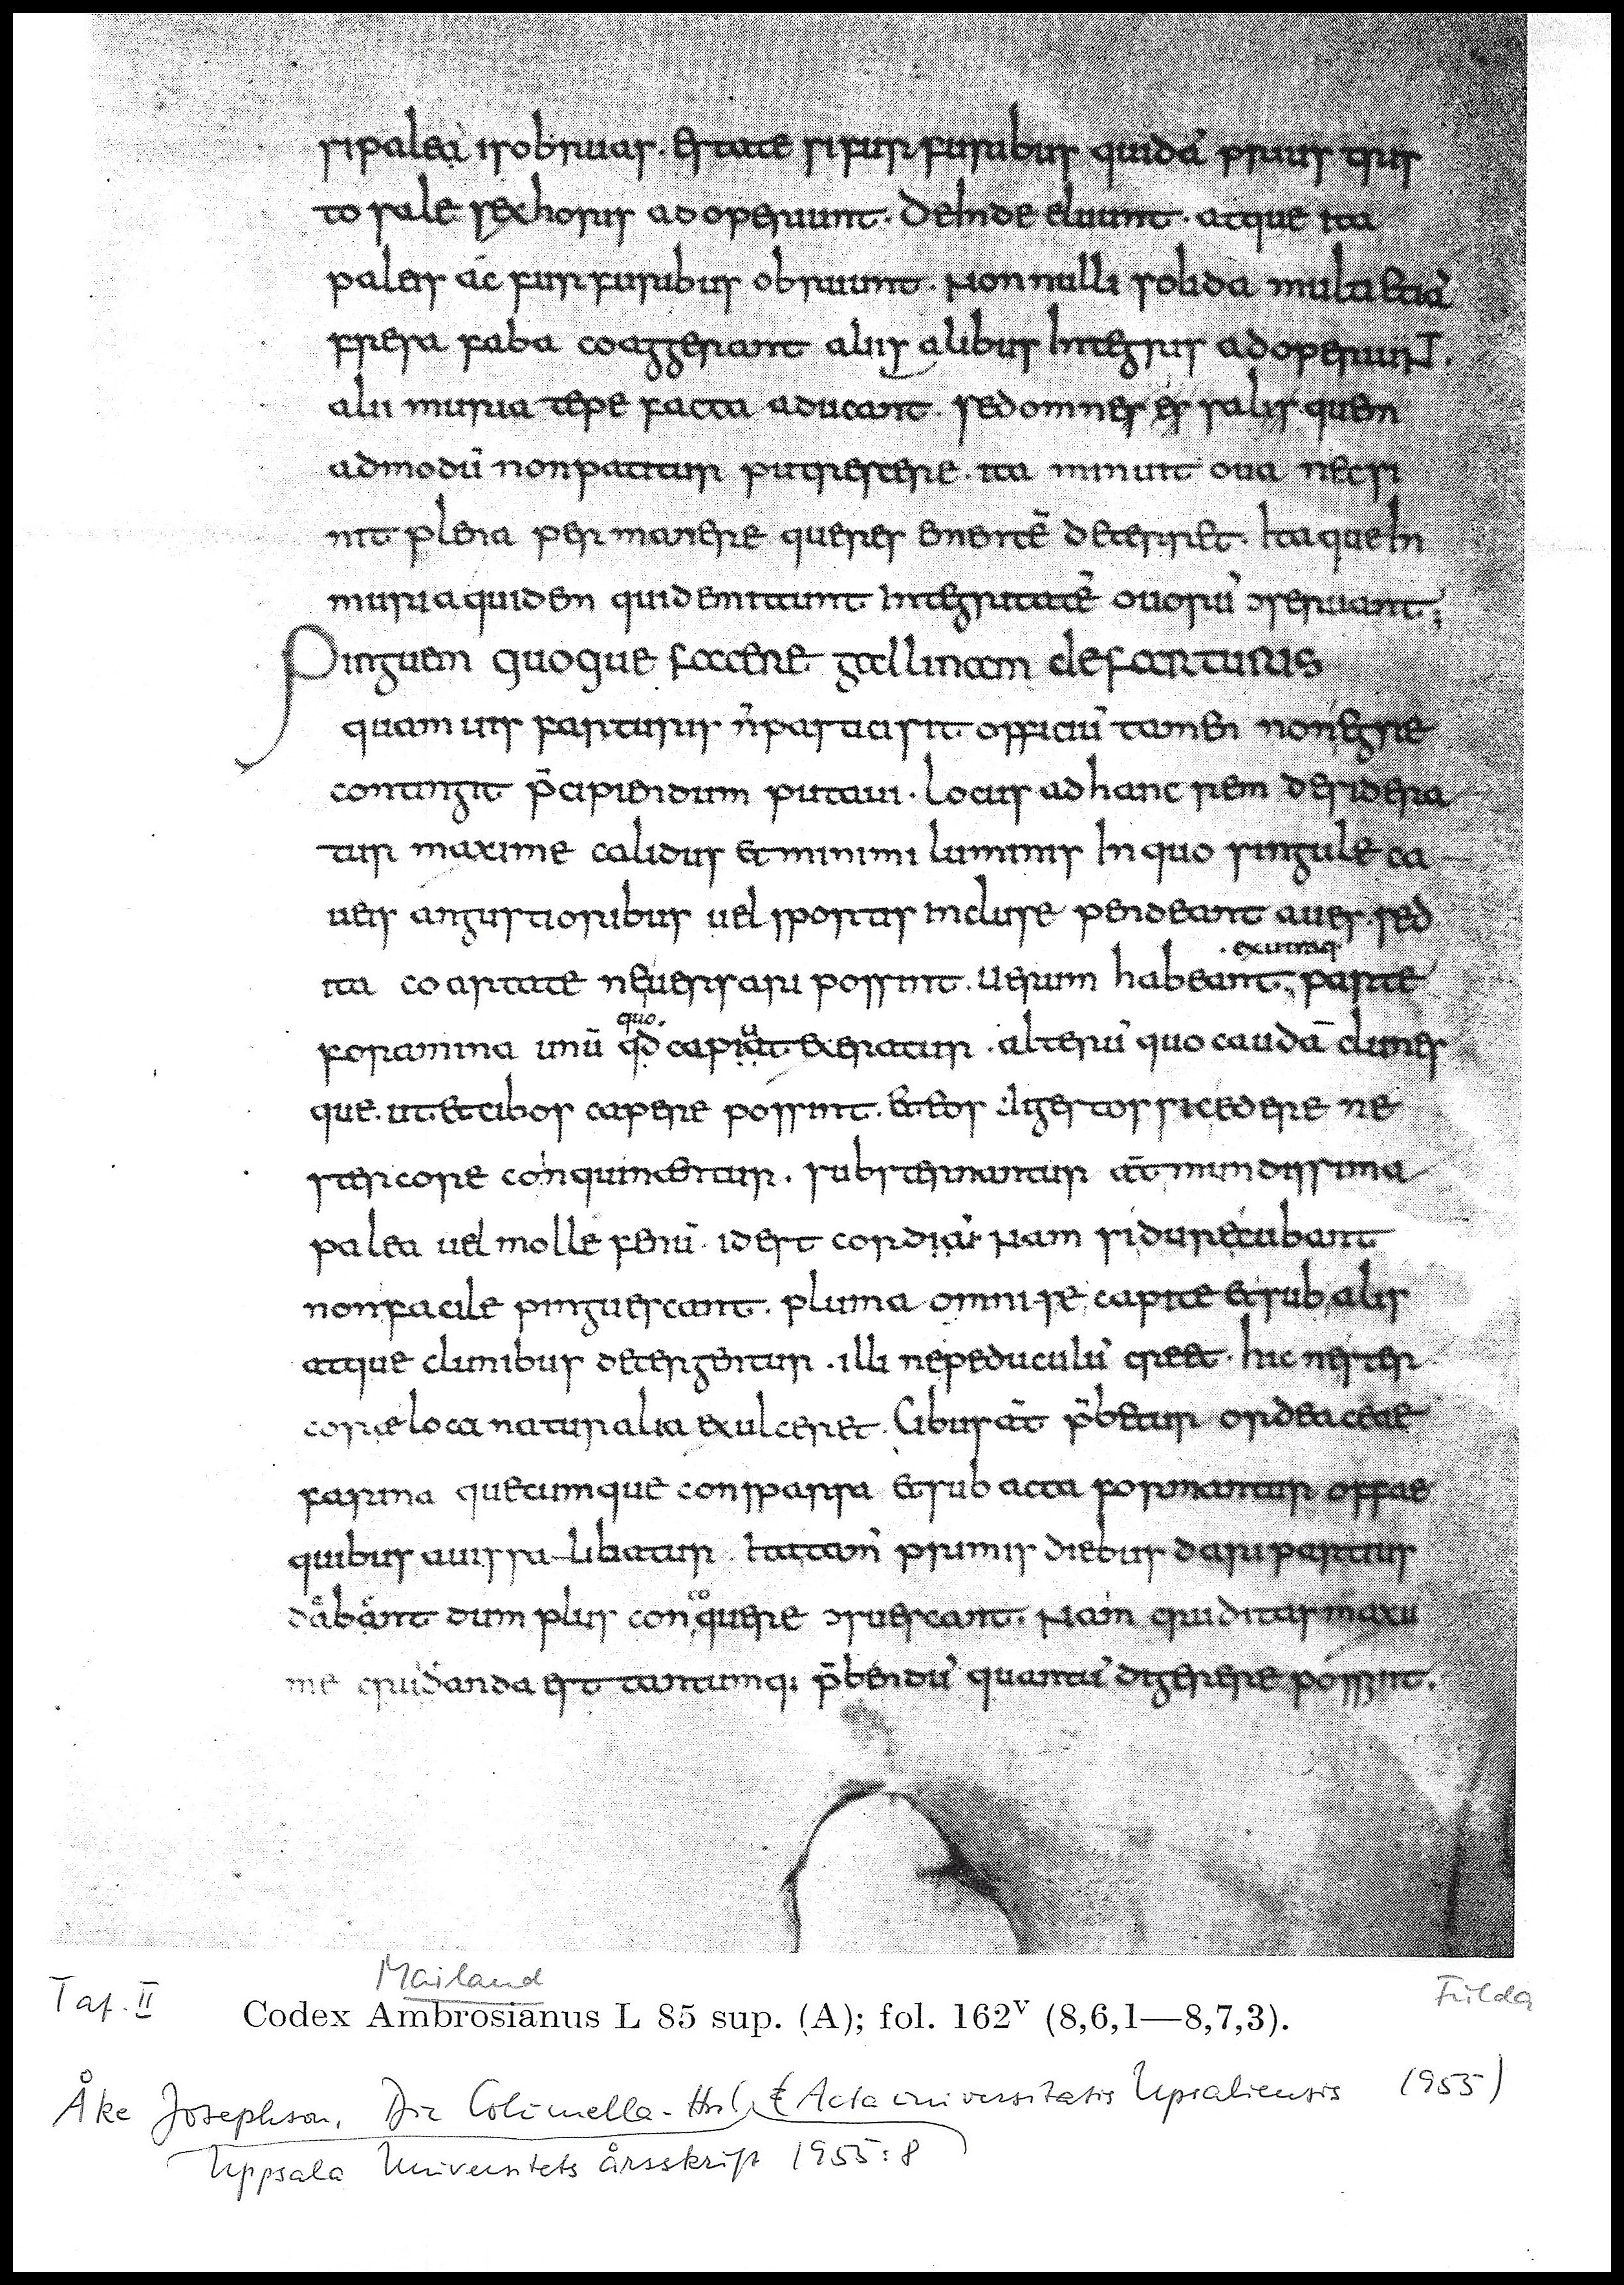 si paleá is obruas. Estate si furfuribus quidã prius tris
to sale sex horis adoperiunt. Deinde eluunt. atque ita
paleis ac furfuribus obruunt. Non nulli solida multi etiã
fresa faba coaggerant aliis alibus integris adoperiunt.
alii muria tepe facta aducant. sed omnes es salis quem
admodũ non patitur putrescere. ita minuit oua nec si
nit plena permanere queres ementẽ deterret. Itaque in
muria quidem qui demittunt integritatẽ ouorũ ɔseruant;
Pinguem quoque faccere gallinam de farturis
quamuis farturis ñ pasticis sit officiũ tamen non egre
contingit p̄cipiendum putaui. Locus ad hanc rem desidera
tur maxime calidus et minimi luminis In quo singule ca
ueis angustioribus uel sportis incluse pendeant aues. sed
ita coartate ne uersari possint. Uerum habeant. parte
·ex utraq·
foramina unũ q̃d capiat exeratur. alterũ quo caudã clunes
quo. u
que. ut et cibos capere possint. Et eos digestos sic edere ne
stercore conquinentur. substernuntur aũt mundissima
palea uel molle fenũ. id est cordiũ Nam si dure cubant
non facile pinguescant. pluma omnis e capite et sub alis
atque clunibus detergentur. illi ne peduculũ creet. hic ne ster
core loca naturalia exulceret. Cibus aũt p̄betur ordeaceae
farina quecumque consparsa et sub acta formantur offae
quibus auis sa libatur. tattam̃ primis diebus dari partius
dabant dum plus conquere ɔsuescant. Nam cruditas maxi
co
me cruidanda est tantumq; p̄bendũ quantũ digerere possint.
Mailand
Taf. II
Fulda
Codex Ambrosianus L 85 sup. (A); fol. 162v (8,6,1—8,7,3).
Åke Josephson, Die Columella-Hss. (Acta universitatis Upsaliensis 1955)
Uppsala Universitets årsskrift 1955:8